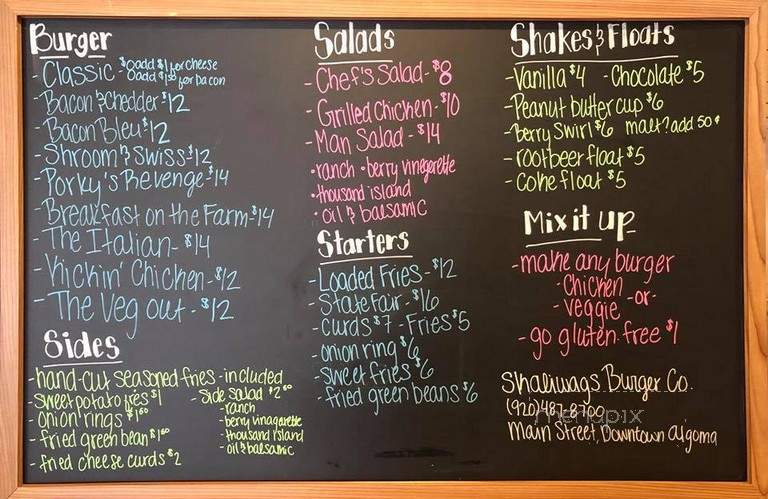 Burger
- Classic - $10 add $1 for cheese
add $1.50 for bacon
- Bacon & Chedder $12
- Bacon Bleu $12
- Shroom & Swiss $12
- Porky's Revenge $14
- Breakfast on the Farm $14
- The Italian - $14
- Kickin' Chicken - $12
- The Veg out - $12
Sides
- hand-cut seasoned fries - included
- sweet potato fries $1
- onion rings $1.50
- fried green bean $1.50
- fried cheese curds $2
- Side salad $2.00
- ranch
- berry vinagerette
- thousand island
- oil & balsamic
Salads
- Chef's Salad - $8
- Grilled Chicken - $10
- Man Salad - $14
• ranch • berry vinegerette
• thousand island
• oil & balsamic
Starters
- Loaded Fries - $12
- State Fair - $16
- curds $7 - Fries $5
- onion ring $6
- sweet fries $6
- fried green beans $6
Shakes & Floats
- Vanilla $4 - Chocolate $5
- Peanut butter cup $6
- Berry Swirl $6 malt? add 50¢
- rootbeer float $5
- Coke float $5
Mix it up
- make any burger
- chicken
- or -
- veggie
- go gluten free $1
Skaliwags Burger Co.
(920) 487-8700
Main Street, Downtown Algoma
menupix